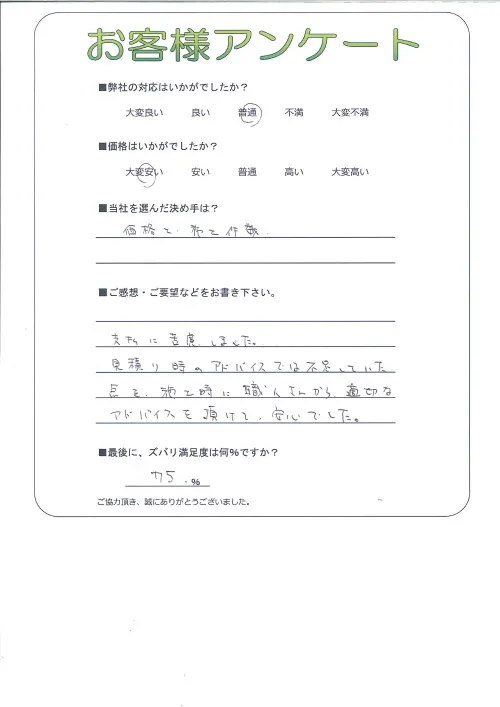 お客様アンケート
■弊社の対応はいかがでしたか？
大変良い 良い 普通 不満 大変不満
■価格はいかがでしたか？
大変安い 安い 普通 高い 大変高い
■当社を選んだ決め手は？
価格と、施工件数、
■ご感想・ご要望などをお書き下さい。
支払に苦慮しました。
見積り時のアドバイスでは不足していた
点を、施工時に職人さんから適切な
アドバイスを頂けて、安心でした。
■最後に、ズバリ満足度は何％ですか？
75.%
ご協力頂き、誠にありがとうございました。